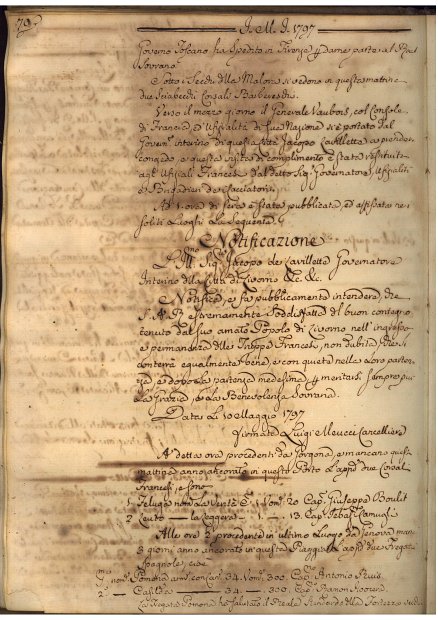 79.
J. M. J. 1797
Governo Toscano ha spedito in Firenze p darne parte al Real
Sovrano
Sotto i Secchi della Malora si vedono in questa mattina
due Sciabecchi Corsali Barbereschi.
Verso il mezzo giorno il Generale Vaubois, col Console
di Francia, ed Ufizialità di sua Nazione si è portato dal
Govern.e interino di questa Città Jacopo Lavillette a prender
congedo, e questa visita di complimento è stata restituita
agl'Ufiziali Francesi dal detto Sig. Governatore, Ufizialità
e Bandieri dei Cacciatori.
Ad 1. ora di sera è stata pubblicata, ed affissata ne'
soliti Luoghi la seguente.
Notificazione
L'Ill.mo Sig. Jacopo de Lavillette Governatore
Interino della Città di Livorno &c. &c.
Notifica, e fa pubblicamente intendere, che
S. A. R. estremamente soddisfatta del buon contegno
tenuto dal suo amato Popolo di Livorno nell'ingresso
e permanenza delle Truppe Francesi, non dubita, che si
conterrà egualmente bene, e con quiete nella loro parten-
za, e dopo la partenza medesima p meritarsi sempre più
la Grazia, e la Benevolenza Sovrana.
Dat. Li 10 Maggio 1797
firmato Luigi Meucci Cancelliere
A detta ora procedenti da Gorgona, e mancano questa
mattina anno ancorato in questo Porto L'app. due Corsali
Francesi, e sono
1 Feluga nom. La Verité C. 1 Uom. 20 Cap. Giuseppe Boulit
2 Leuto — La Leggera — 1 — 13. Cap.
Alle ore 2 procedenti in ultimo Luogo da Genova man-
3 giorni anno ancorato in questa Piaggia L'app. due Fregate
Spagnole, cioè
p.ma nom. Pomona arm. Cann. 34. Uom. 300. Cap. Antonio Ruis
2.a — Casilda — 34. — 300. Cap. Ramon
La Fregata Pomona ha salutato il Reale Stendardo della Fortezza